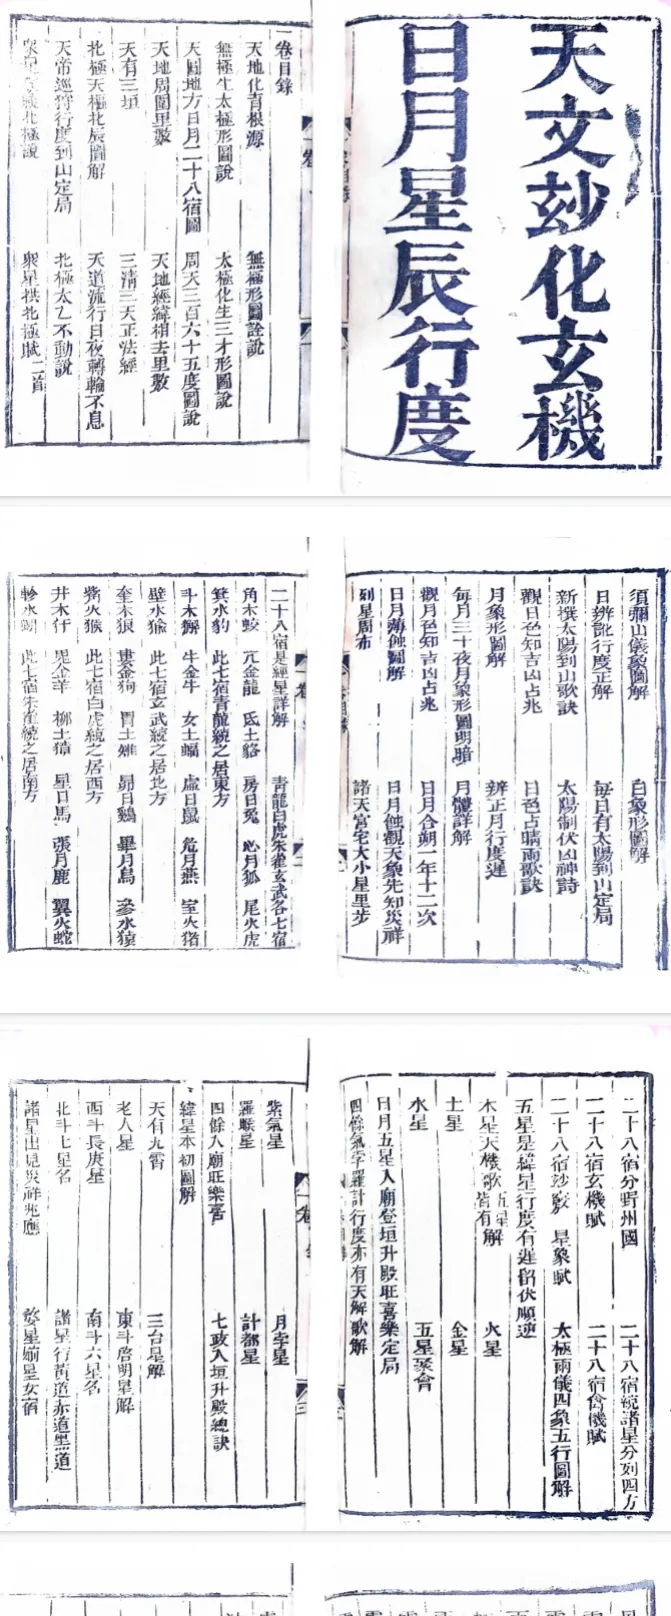 天文玅化玄機
日月星辰行度
一卷目錄
天地化育根源 無極形圖詮說
無極生太極形圖說 太極化生三才形圖說
天圓地方日月二十八宿圖 周天三百六十五度圖說
天地周圍里數 天地經緯相去里數
天有三垣 三清三天正法經
北極天樞北辰圖解 天道流行日夜轉輪不息
天帝巡狩行度到山定局 北極太乙不動說
北極說 衆星拱北極賦二首
須彌山儀象圖解 白象形圖解
日辨訛行度正解 每日有太陽到山定局
新撰太陽到山歌訣 太陽制伏凶神詩
觀日色知吉凶占兆 日色占晴雨歌訣
月象形圖解 辨正月行度遲
每月三十夜月象形圖明暗 月體詳解
觀月色知吉凶占兆 日月合朔一年十二次
日月薄蝕圖解 日月蝕觀天象先知災祥
列星周布 諸天宮宅大小星里步
二十八宿是經星詳解 青龍白虎朱雀玄武各七宿
角木蛟 亢金龍 氐土貉 房日兔 心月狐 尾火虎
箕水豹 此七宿青龍統之居東方
斗木獬 牛金牛 女土蝠 虛日鼠 危月燕 室火猪
壁水㺄 此七宿玄武統之居北方
奎木狼 婁金狗 胃土雉 昴日鷄 畢月烏 參水猿
觜火猴 此七宿白虎統之居西方
井木犴 鬼金羊 柳土獐 星日馬 張月鹿 翼火蛇
軫水蚓 此七宿朱雀統之居南方
二十八宿分野州國 二十八宿統諸星分列四方
二十八宿玄機賦 二十八宿禽機賦
二十八宿玅數 星象賦 太極兩儀四象五行圖解
五星是緯星行度有遲留伏順逆
木星天機歌五星皆有解 火星
土星 金星
水星 五星聚會
日月五星入廟登垣升殿旺喜樂定局
四餘氣孛羅計行度亦有天解歌解
紫氣星 月孛星
羅睺星 計都星
四餘入廟旺樂喜 七政入垣升殿總訣
緯星本初圖解
天有九霄 三台星解
老人星 東斗啓明星解
西斗長庚星 南斗六星名
北斗七星名 諸星行黃道赤道黑道
諸星出見災祥兆應 婺星媊星女宿